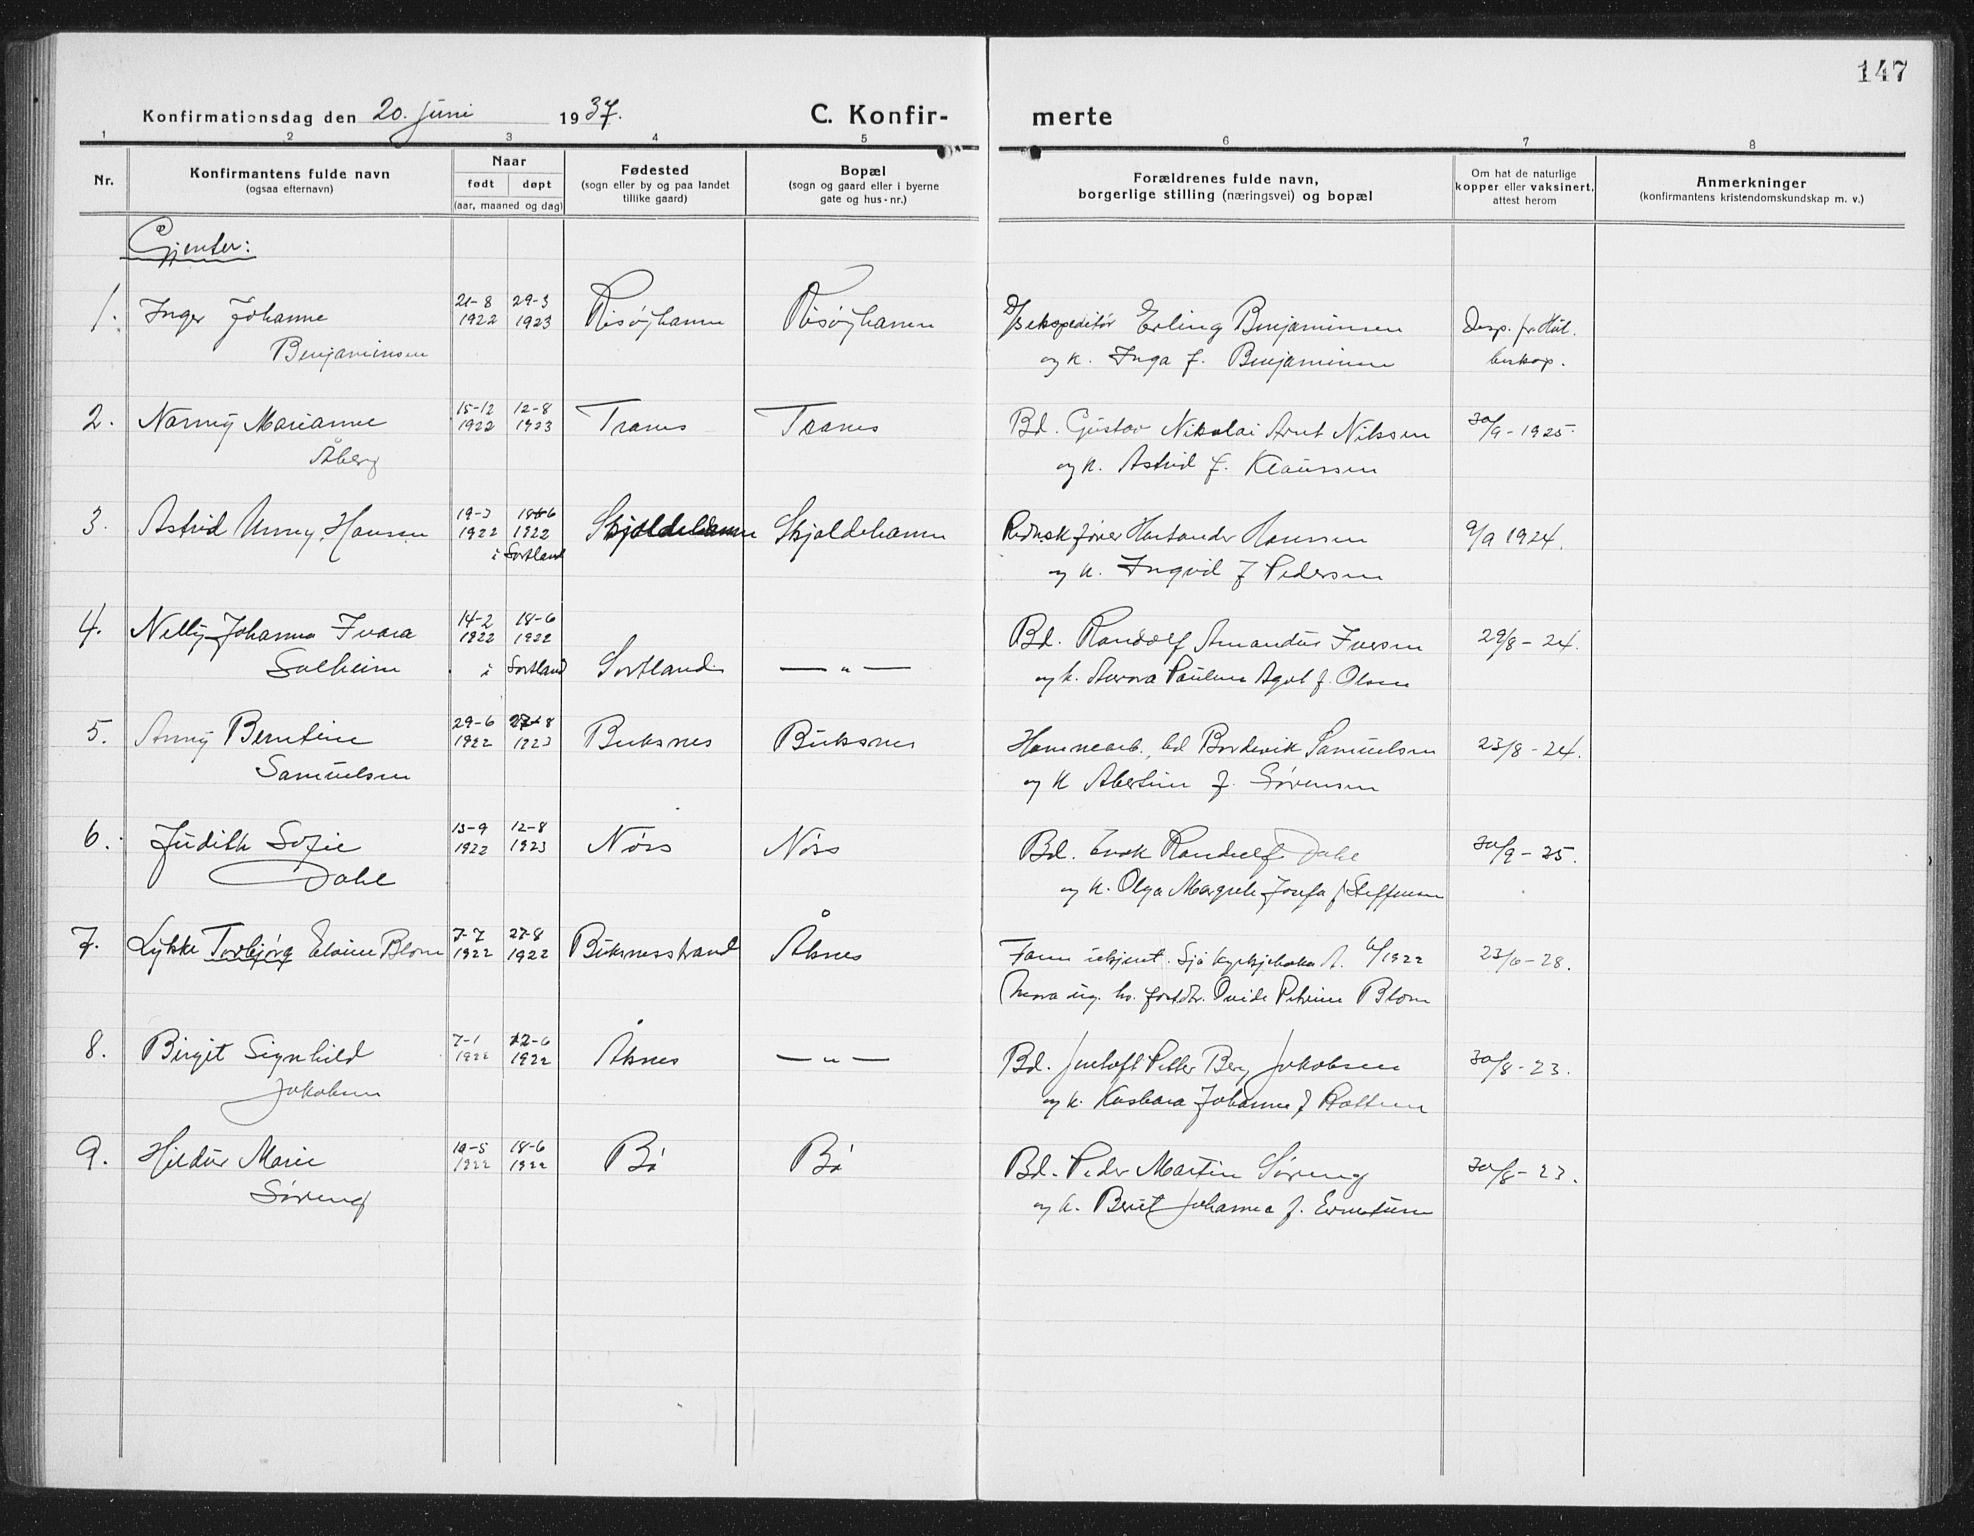 147
Konfirmationsdag den 20. juni 1937. C. Konfir- merte
1 2 3 4 5 6 7 8
Nr.
Konfirmantens fulde navn
(ogsaa efternavn)
Naar
født døpt
(aar, maaned og dag)
Fødested
(sogn eller by og paa landet
tillike gaard)
Bopæl
(sogn og gaard eller i byerne
gate og hus-nr.)
Forældrenes fulde navn,
borgerlige stilling (næringsvei) og bopæl
Om hat de naturlige
kopper eller vaksinert,
attest herom
Anmerkninger
(konfirmantens kristendomskundskap m. v.)
Gjenter:
1. Inger Johanne 21-8 29-3 Risøyhamn Risøyhamn D/S ekspeditør Erling Benjaminsen Desp. fr.
Benjaminsen 1922 1923 og k. Inga f. Benjaminsen
2. Nanny Marianne 15-12 12-8 Tranes Tranes Bd. Gustav Nikolai Arnt Nilssen 30/9-1925.
Åberg 1922 1923 og k. Astrid f. Klaussen
3. Astrid Unny Hansen 19-3 18-6 Skjoldehamn Skjoldehamn Hanssen 9/9 1924.
1922 1922 og k. Ingvid f Pedersen
i Sortland
4. Nelly Johanna Ivara 14-2 18-6 Bd. Randolf Amandus Iversen 29/8-24.
1922 1922
Solheim i Sortland Sortland — " — og k. Aurora Pauline Agot f. Olsen
5. Anny Berntine 29-6 27-8 Buksnes Buksnes Bd Bordevik Samuelsen 23/8-24.
Samuelsen 1922 1923 og k Albertine f. Sørensen
6. Judith Sofie 13-9 12-8 Nøss Nøss Bd. Enok Randulf Dahl 30/9-25.
Dahl 1922 1923 og k. Olga Margrete Josefa f Steffensen
7. Lykke Torbjørg Elvine Blom 7-7 27-8 Buksnesstrand Åknes Faren ukjent. Sjå kyrkjeboka A. 6/1922 23/6-28.
1922 1922 Mora ug. Ovide Petrine Blom
8. Birgit Signhild 7-1 12-6 Åknes — " — Bd. Jentoft Petter Berg Jakobsen 30/8-23.
Jakobsen 1922 1922 og k. Johanna f
9. Hildur Marie 10-5 18-6 Bø Bø Bd. Peder Martin Søreng 30/8-23.
Søreng 1922 1922 og k. Berit Johanna f.